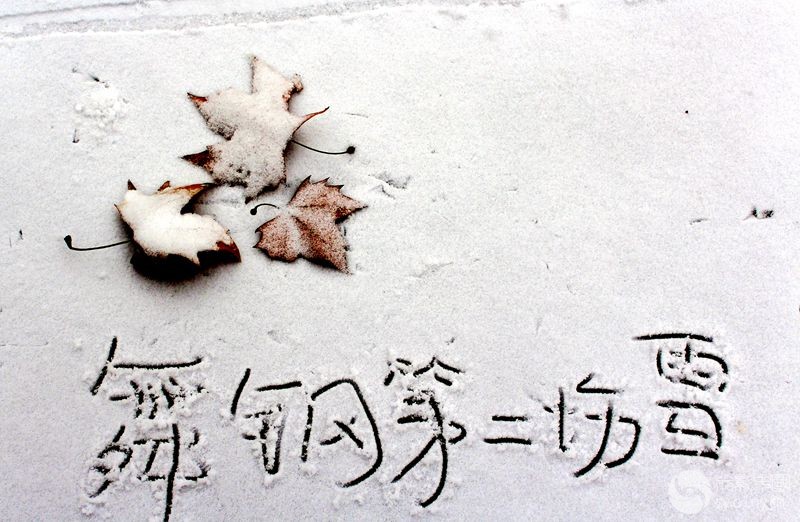 舞钢第二场雪